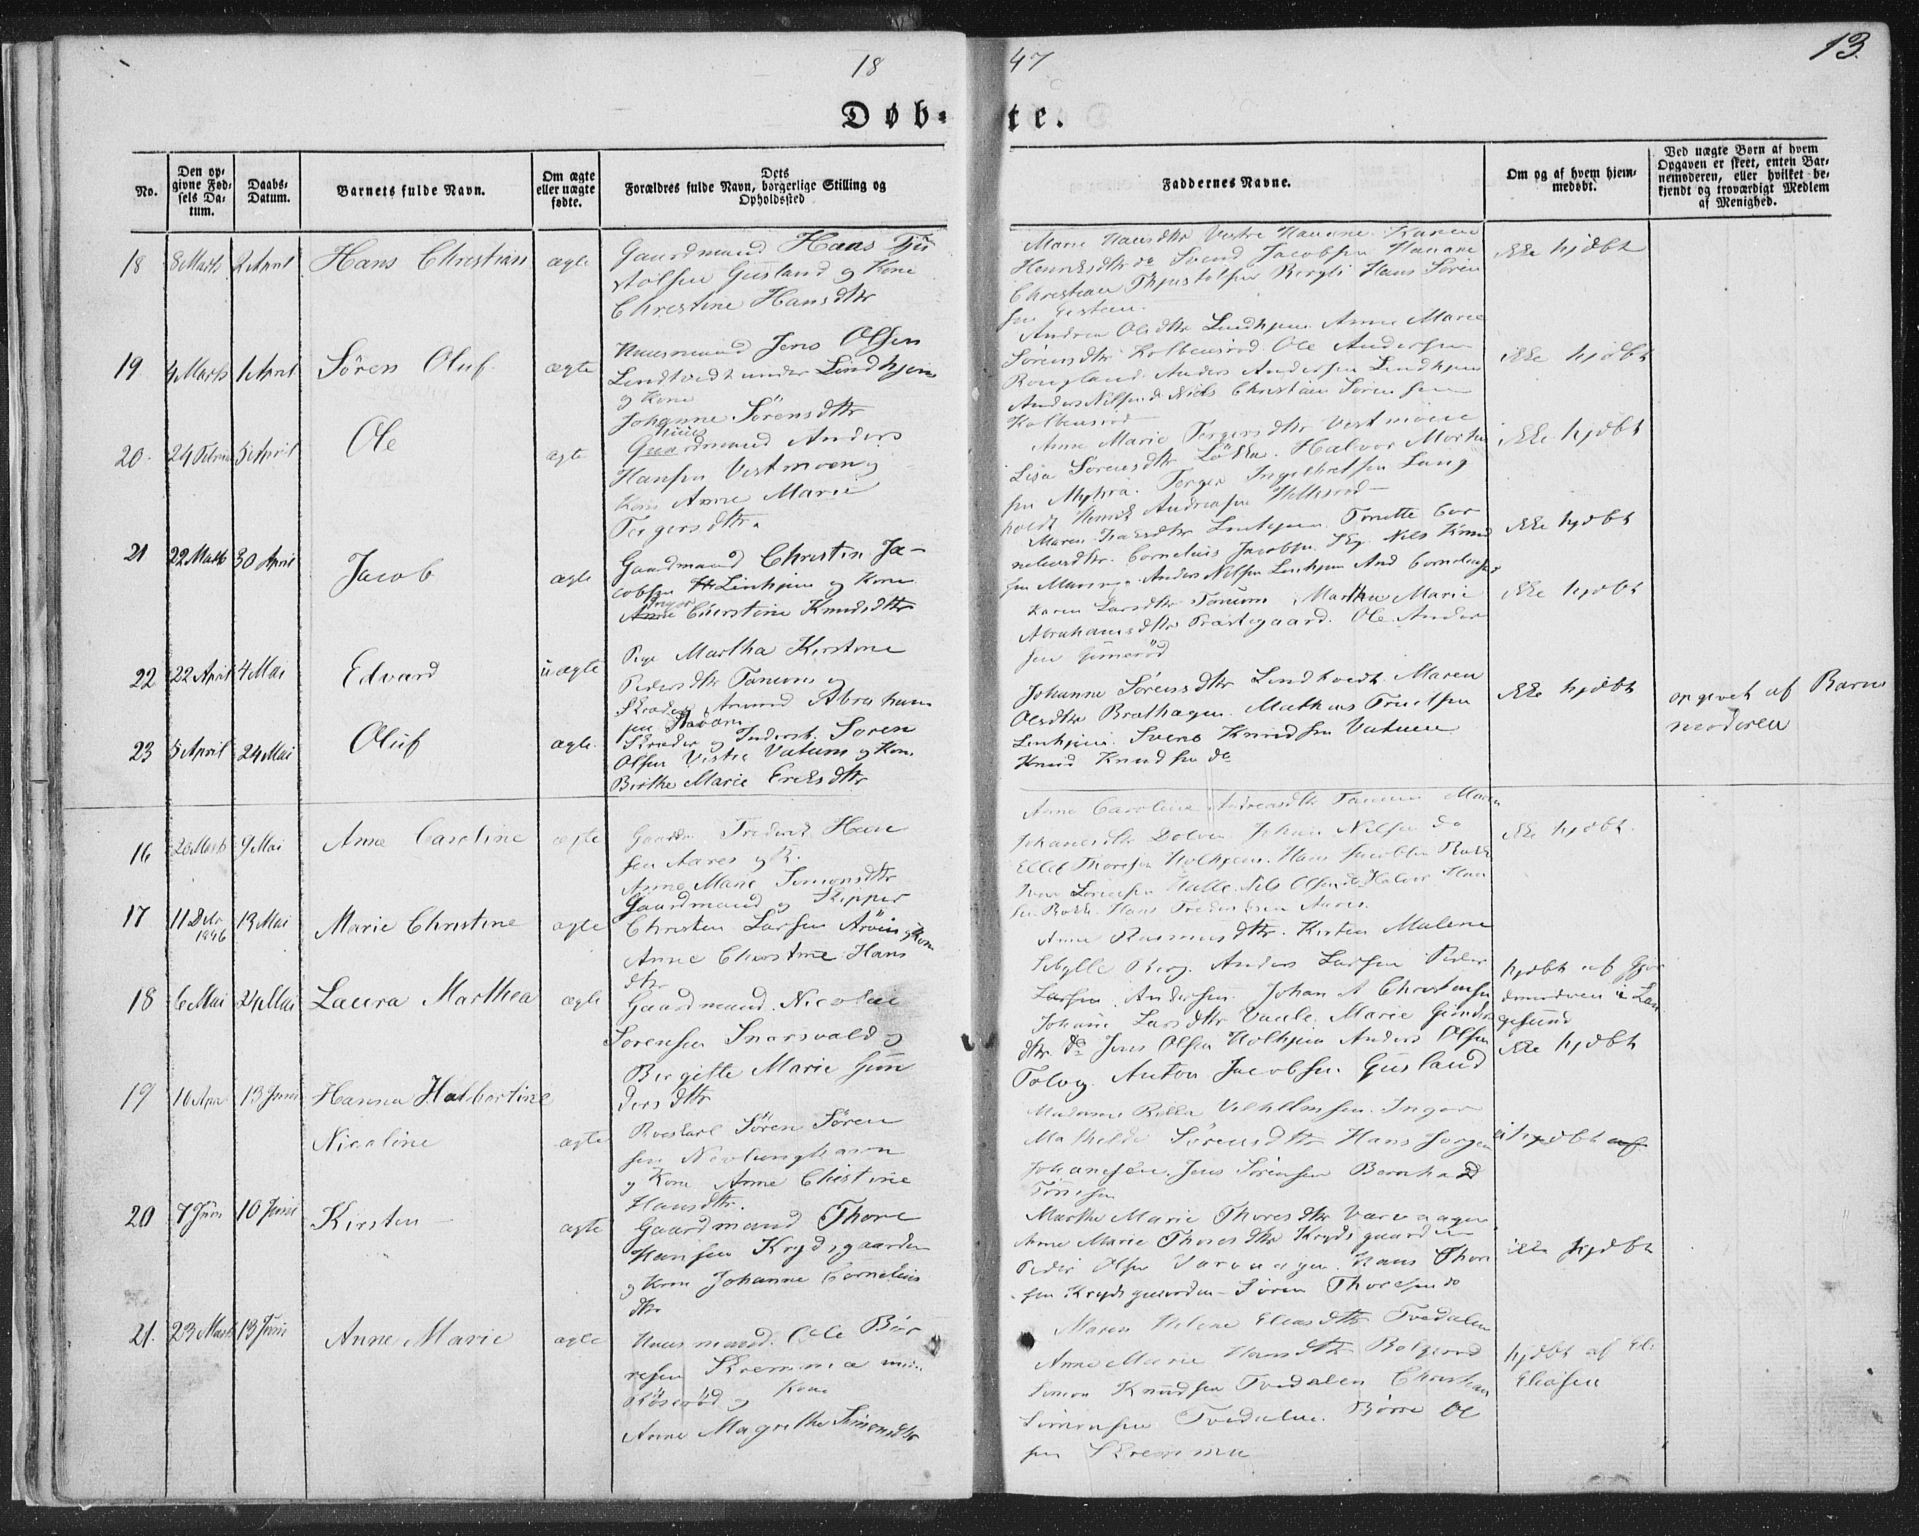 18 47
13.
Døb- te.
No.
Den opgivne Fødsels Datum.
Daabs-Datum.
Barnets fulde Navn.
Om ægte eller uægte fødte.
Dets Forældres fulde Navn, borgerlige Stilling og Opholdssted
Faddernes Navne.
Om og af hvem hjemmedøbt.
Ved uægte Børn af hvem Opgaven er skeet, enten Barnemoderen, eller hvilket bekjendt og troværdigt Medlem af Menighed.
18 8 Marts 2 April Hans Christian ægte
Gaardmand Hans Tju
stolsen Gusland og Kone
Christine Hansdtr
Marie Hansdtr Vestre Hanane Karen
Henriksdtr do Svend Jacobsen Hanane
Christian Thjustolsen Bergli Hans Søren
sen
ikke hjdbt
19 4 Marts 1 April Søren Oluf ægte
Huusmand Jens Olsen
Lindtvedt under Lindhjem
og Kone
Johanne Sørensdtr
Andrea Olsdtr Lindhjem Anne Marie
Sørensdtr Kolbensrød Ole Andersen
Rougland Anders Andersen Lindhjem
Anders Nilsen do Niels Christian Sørensen
Kolbensrød
ikke hjdbt
20. 24 Februar 5 April Ole ægte
Huus
Gaardmand Anders
Hansen Vestmoen og
Kone Anne Marie
Tergersdtr.
Anne Marie Tergersdtr Vestmoene
Lisa Sørensdtr Løkka. Halvor Morten
sen Myhra. Terger Ingebretsen Lang
holdt Henrik Andreasen
ikke hjdbt
21 22 Marts 30 April Jacob ægte
Gaardmand Christen Ja-
cobsen Linhjem og Kone
Inger
Anne Cherstine Knudsdtr
Maren Linhjem. Tonette Cor
neliusdtr. Cornelius Jacobsen Nils Knud
sen Anders Nilsen Linhjem And Corneliusen
ikke hjdbt
22 22 April 4 Mai Edvard uægte
Pige Martha Kirstine
Pedersdtr Tanum og
Skræder Amund Abraham
sen
Karen Larsdtr Tanum, Marthe Marie
Abrahamsdtr Præstegaard. Ole Ander
sen
ikke hjdbt
opgivet af Barne
moderen
23 5 April 24 Mai Oluf ægte
Skræder og Inderst. Søren
Olsen Vestre Vatum og Kone
Birthe Marie Eriksdtr
Johanne Sørensdtr Lindtvedt Maren
Olsdtr Brathagen. Mathias Truelsen
Linhjem. Svend Knudsen Vatum
Knud Knudsen do
ikke hjdbt
16 2 Marts 9 Mai Anne Caroline ægte
Gaardm Frederik Han
sen Aares og K.
Anne Marie Simonsdtr
Anne Caroline Andreasdtr Tanum Maren
Johanesdtr Dolven Johan Nilsen do
Ellef Thoresen Holhjem. Hans Jacobsen Bakke
Iver Sørensen Halle Nils Olsen do Halvor Han
sen Bakke. Hans Frederiksen Aares.
ikke hjdbt.
17 11 Debr 1846 13 Mai Marie Christine ægte
Gaardmand og Skipper
Christen Larsen Arøen og Kone
Anne Cherstine Hans
dtr
Anne Rasmusdtr. Kirsten Malene
Sibylle Berg. Anders Larsen Peder
Larsen Andersen. Johan A Christensen
hjdbt af Gjor
demoderen i Lan
gesund
18 6 Mai 24 Mai Laura Marthea ægte
Gaardmand Nicolai
Sørensen Snarsvald og
Birgitte Marie Gun
dersdtr
Johane Larsdtr Vaale. Marie Gunders
dtr do Jens Olsen Holhjem Anders Olsen
Tolvg. Anton Jacobsen Gusland
ikke hjdbt
19 16 Apr 13 Juni Hanna Halbertine
Nicoline ægte
Roeskarl Søren Søren
sen Nevlunghavn
og Kone Anne Christine
Hansdtr.
Madame Rikka Vilhelmsen. Inger
Mathilde Sørensdtr Hans Jørgen
Johanesen. Jens Sørensen Bernhard
Tønnesen
hjdbt af
20 7 Juni 10 Juni Kirsten ægte
Gaardmand Thore
Hansen Krydsgaarden
og Kone Johanne Cornelius
dtr
Marthe Marie Thoresdtr Varvaagen
Anne Marie Thoresdtr Krydsgaarden
Peder Olsen Varvaagen. Hans Thore
sen Krydsgaarden - Søren Thoresen do
ikke hjdbt
21. 23 Marts 13 Juni Anne Marie ægte
Huusmand. Ole Bør
resen Skremma un
Røserød og Kone
Anne Magrethe Simonsdtr
Maren Helene Eliasdtr Tvedalen
Anne Marie Hansdtr Bolgerød
Simon Knudsen Tvedalen Christian
Simonsen Tvedalen. Børre Ol
sen Skremma
hjdbt af El.
Eliasen